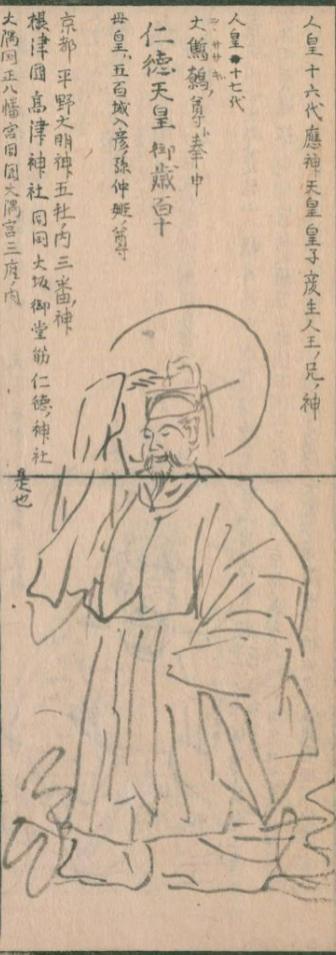 人皇十六代應神天皇皇子廋生人王ノ兄ノ神
人皇十七代
大鷦鷯ノ尊ト奉申
仁德天皇 御歳百十
母皇ハ五百城入彦孫仲姫ノ尊
京都 平野大明神五社ノ内三番ノ神
攝津國高津神社 同國大坂御堂筋仁德ノ神社
是也
大隅國正八幡宮同國大隅宮三座ノ内